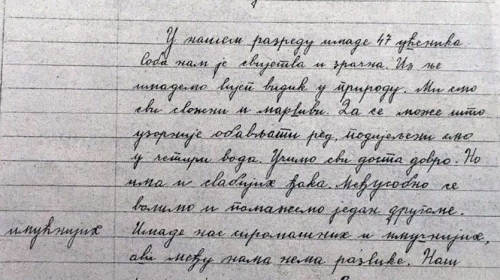 У нашем разреду имаде 47 ученика.
Соба нам је свијетла и зрачна. Из ње
имадемо вијст видик у природу. Ми смо
сви сложни и марљиви. Да се може што
уздржије обављати ред, подијељени смо
у четири вода. Учимо сви доста добро. Но
има и слабијих ђака. Међусобно се
волимо и помажемо један другоме.
имућнијих Имаде нас сиромашних и имућнијих,
али међу нама нема разлике. Наш